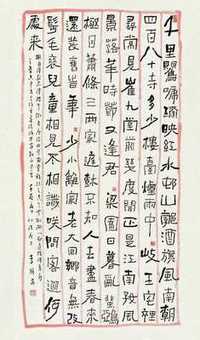 千里鶯啼綠映紅水邨山郭酒旗風南朝
四百八十寺多少樓臺煙雨中 岐王宅裡
尋常見崔九堂前幾度聞正是江南好風
景落華時節又逢君 梁園日暮亂飛鴉
極目蕭條三兩家庭樹不知人去盡春來
還發舊時華 少小離家老大回鄉音無改
鬢毛衰兒童相見不相識笑問客從何
處來